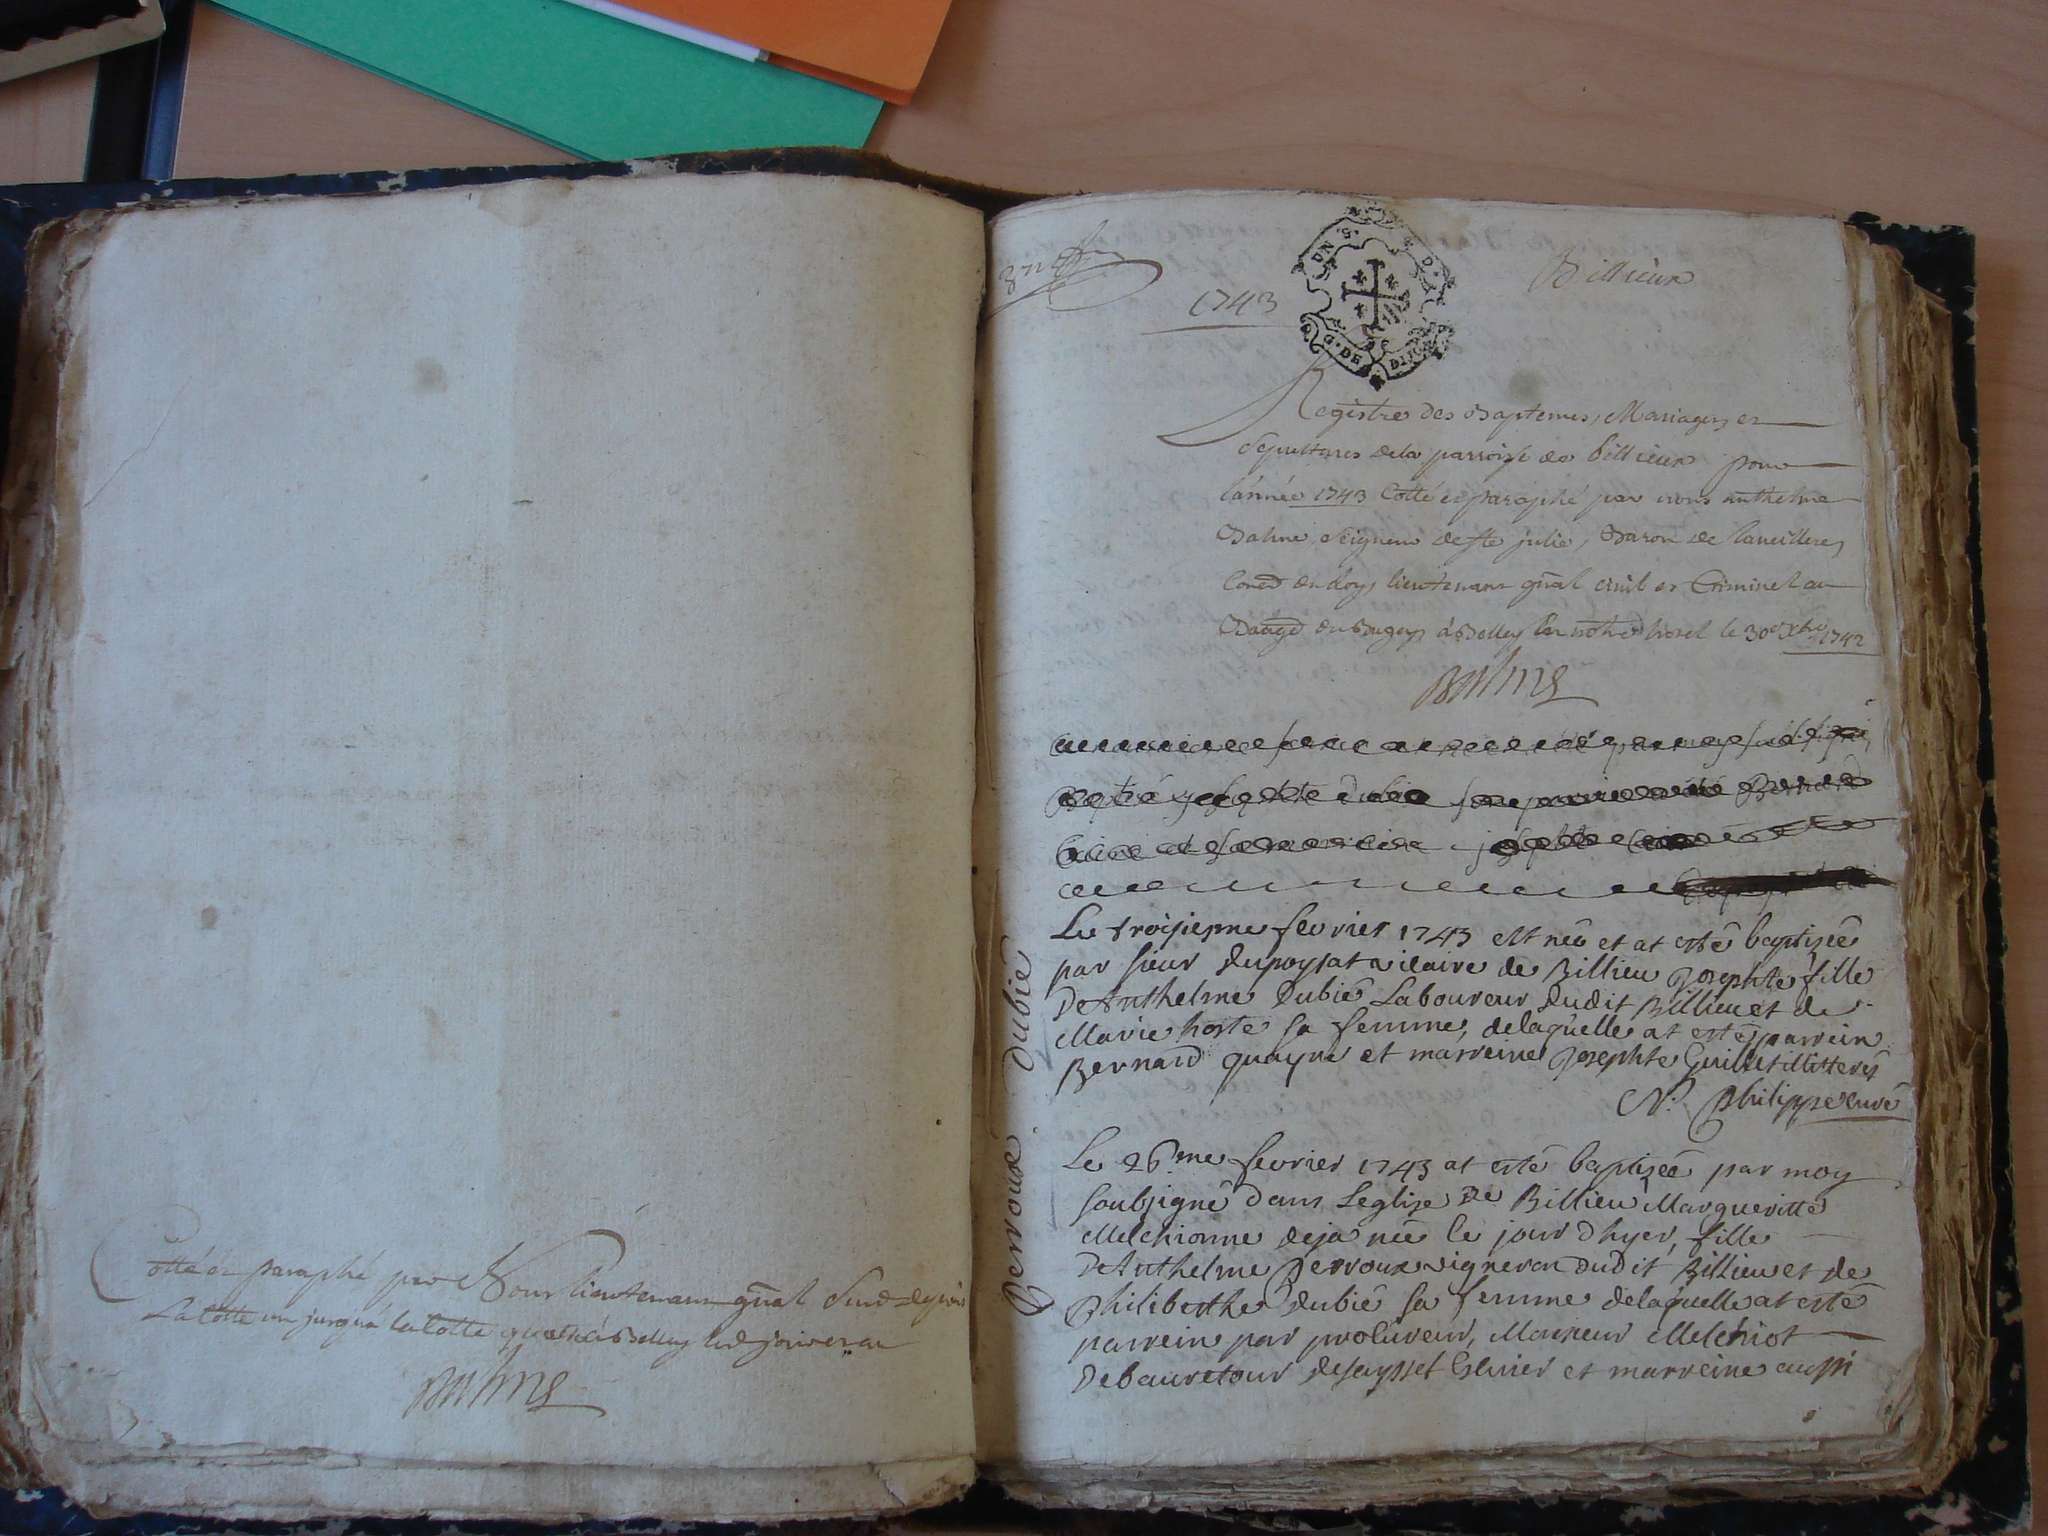 Cotté et paraphé par Nous Lieutenant gñal Susd depuis
La Cotte un jusqu'à la Cotte quatre à Belley led jour et an
Balme
1743
Billieux
G. DE DIJON
Registre des Baptemes, Mariages, et
Sepultures de la parroisse de Billieux pour
l'année 1743 Cotté et paraphé par nous anthelme
Balme, Seigneur de Ste julie, Baron de
du Roy, lieutenant gñal civil et Criminel au
Bailge du Bugey à Belley En notre hotel le 30e Xbre 1742
Balme
Dubié
Le troisieme fevrier 1743 est née et at esté baptisée
par sieur dupoysat vicaire de Billieu Josephte fille
D'Anthelme Dubié Laboureur dudit Billieu et de
Marie hoste sa femme, delaquelle at esté parrein
Bernard quayne et marreine Josephte Guillet illitterés
N. Philippe curé
Perroux
Le 26.me fevrier 1743 at esté baptisée par moy
soubsigné dans Leglise de Billieu Margueritte
Melchionne deja née le jour d'hyer, fille
D'Anthelme Perroux vigneron dudit Billieu et de
Philiberthe dubié sa femme delaquelle at esté
parrein par procureur, Monsieur Melchiot
Debauretour et marreine aussi